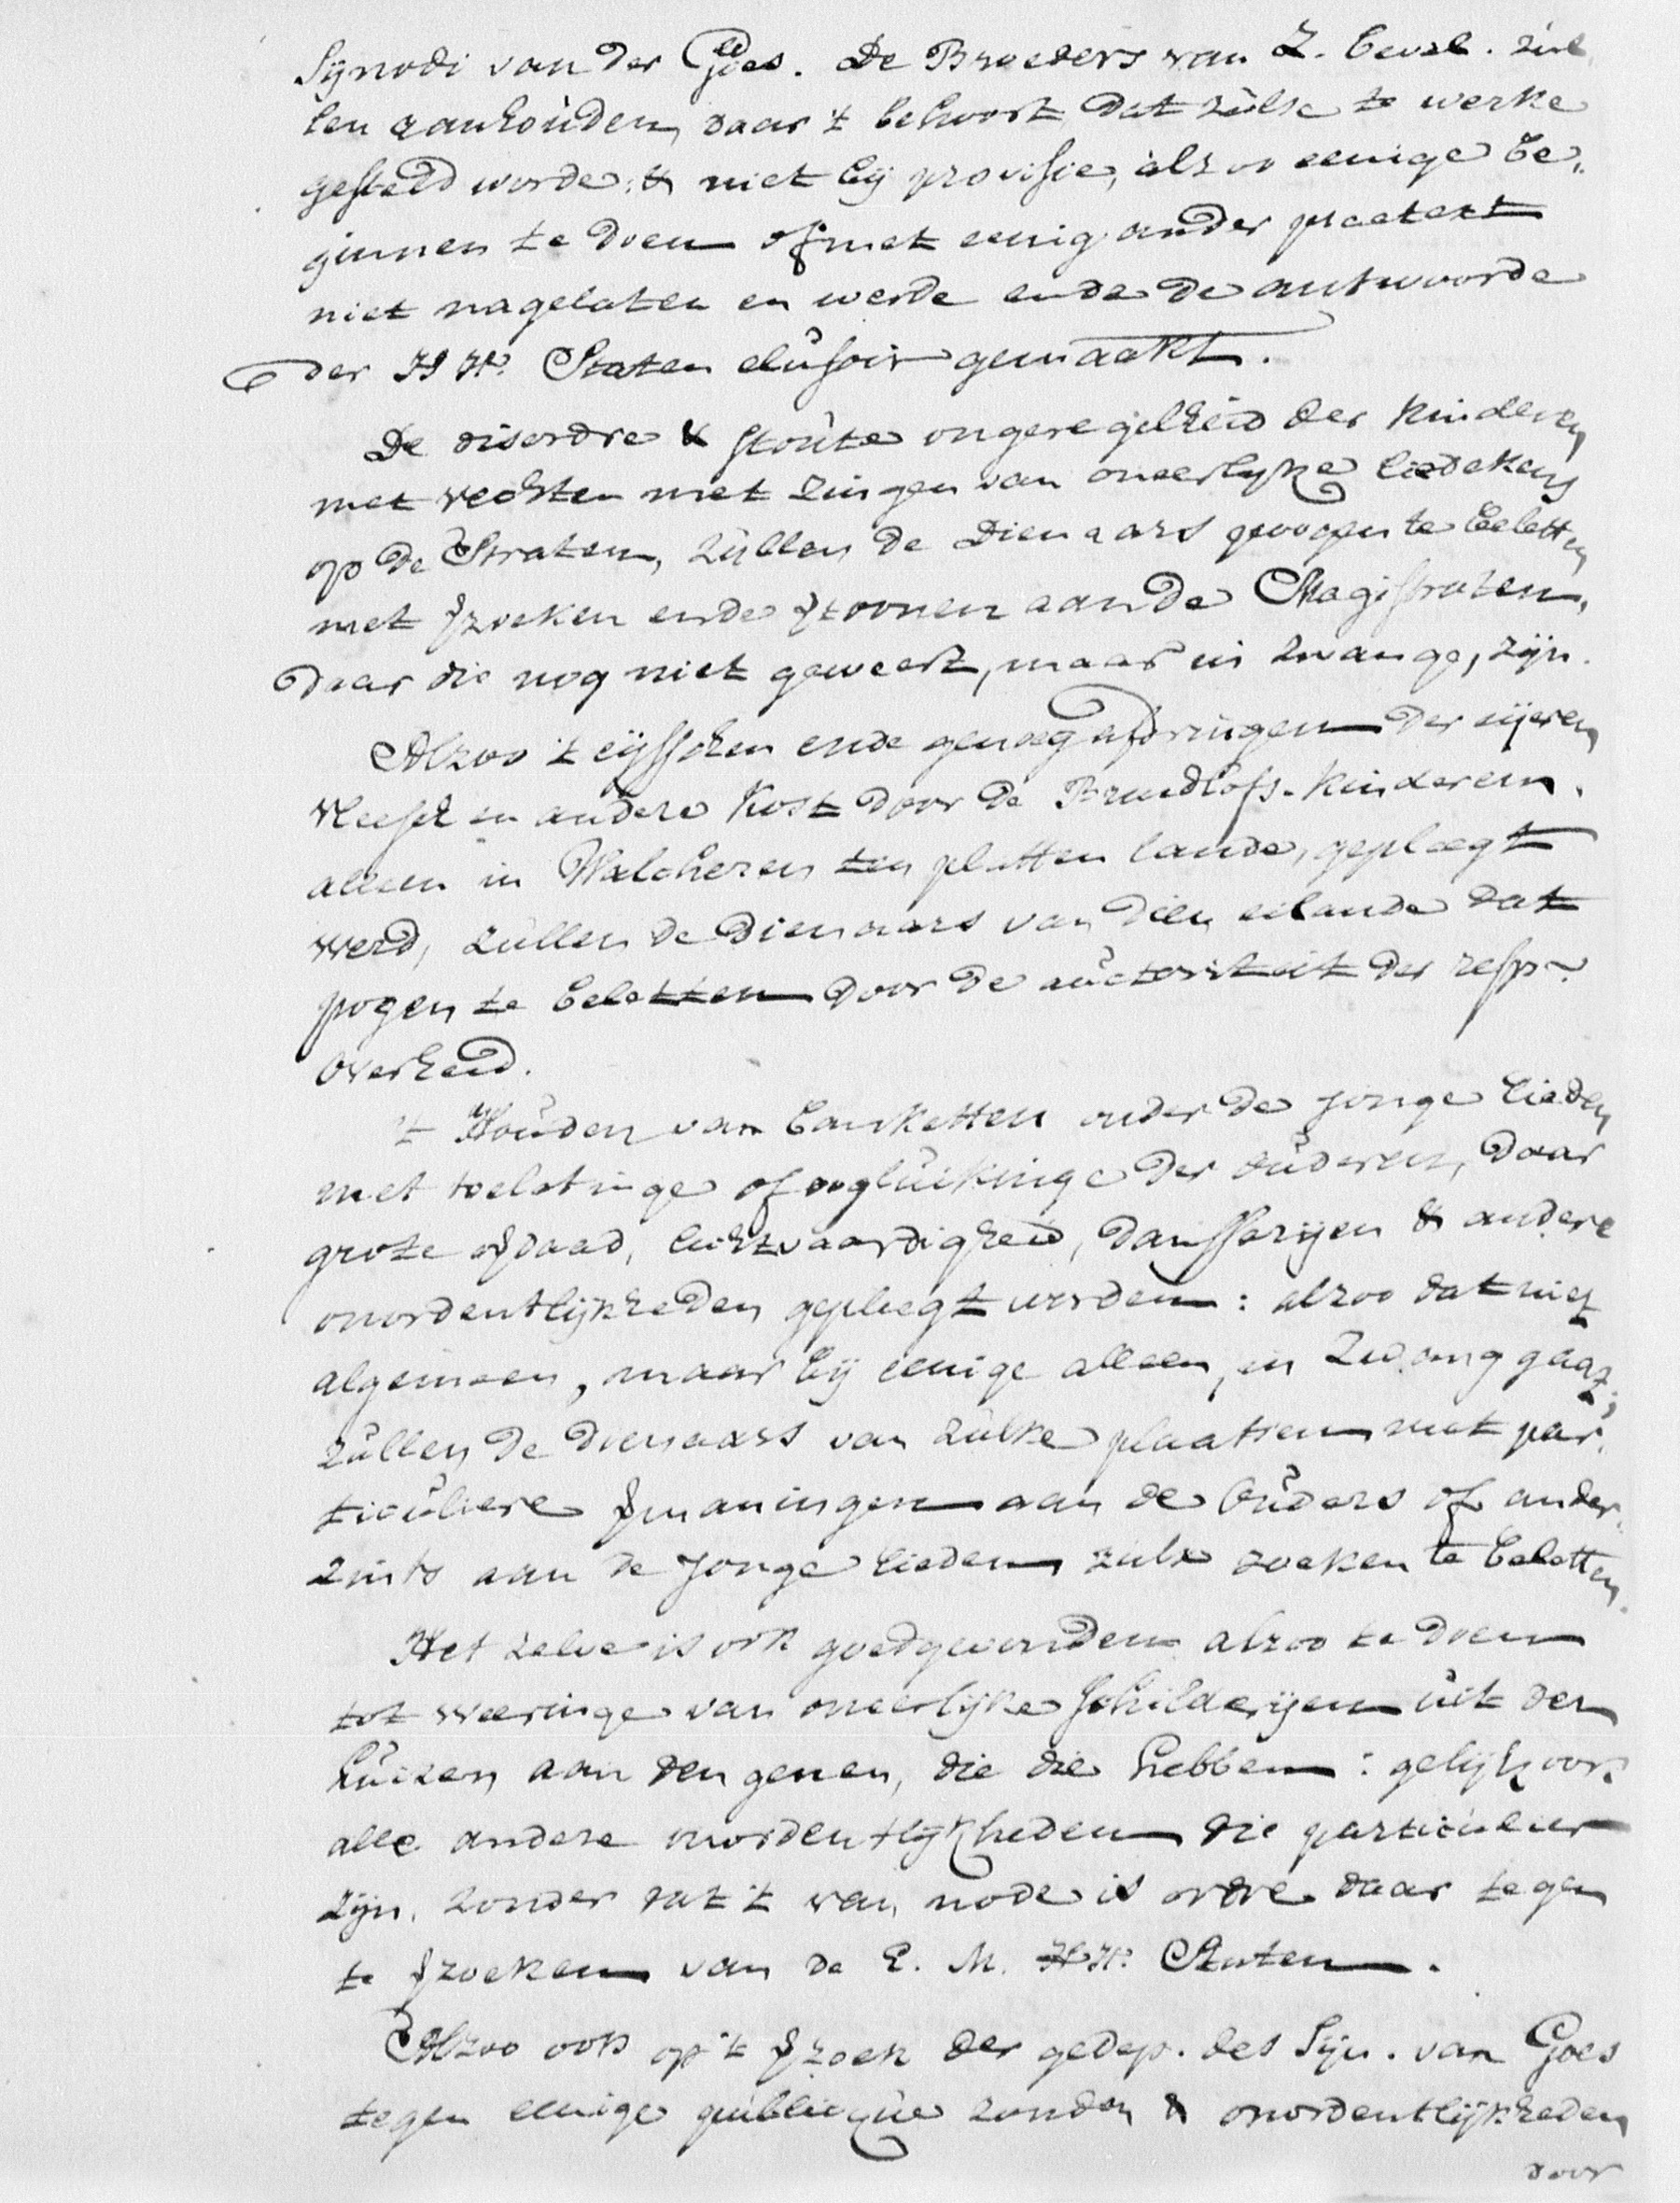 Synodi van der Goes. De Broeders van Z. Bevel. zul
len aanhouden, daar 't behoort dat zulx te werke
gesteld worde: & niet bij provisie, alzoo eenige be„
ginnen te doen of met eenig ander praetext
niet nagelaten en werde ende de antwoorde
der HH.ⁿ Staten elusoir gemaakt.
De disordre & stoute ongeregeltheid der kinderen
met vechten met zingen van oneerlyke liedekens
op de Straten, zullen de Dienaars poogen te beletten
met vzoeken ende vtoonen aan de Magistraten,
daar die nog niet geweert, maar in zwange, zijn.
Alzoo 't eijsschen ende genoeg afdringen der eijeren
vleesch en andere Kost door de Bruidlofs-kinderen.
alleen in Walcheren ten platten lande, gepleegt
werd, zullen de Dienaars van dien eilande dat
pogen te beletten door de auctoriteit der resp.
overheid.
't Houden van banketten onder de jonge lieden
met toelatinge of oogluikinge der ouderen, daar
grote ovdaad, lichtvaardigheid, dansserijen & andere
onordentlijkheden gepleegt werden: alzoo dat niet
algemeen, maar bij eenige alleen, in Zwang gaat;
zullen de dienaars van zulke plaatsen met par„
ticuliere vmaningen aan de Ouders of ander„
zints aan de Jonge lieden zulx zoeken te beletten.
Het zelve is ook goedgevonden alzoo te doen
tot weeringe van oneerlijke schilderijen uit den
huizen aan den genen, die die hebben: gelijk ook
alle andere onordentlijkheden die particulier
zijn, zonder dat 't van node is ordre daar tegen
te vzoeken van de E. M. HH. Staten.
Alzoo ook op 't vzoek der gedep. des Syn. van Goes
tegen eenige publicque zonden & onordentlijkheden
door